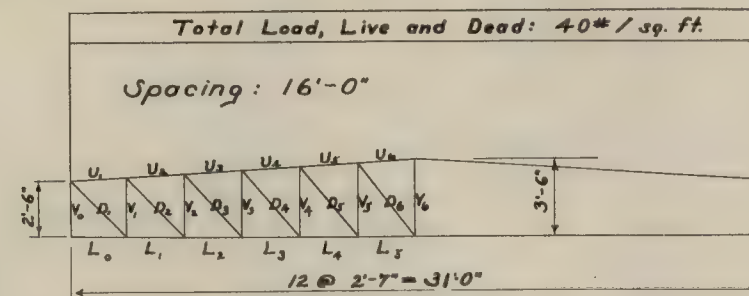 Total Load, Live and Dead: 40# / sq. ft.
Spacing: 16'-0"
U₁ U₂ U₃ U₄ U₅ U₆
2'-6" V₀ D₁ V₁ D₂ V₂ D₃ V₃ D₄ V₄ D₅ V₅ D₆ V₆ 3'-6"
L₀ L₁ L₂ L₃ L₄ L₅
12 @ 2'-7" = 31'0"